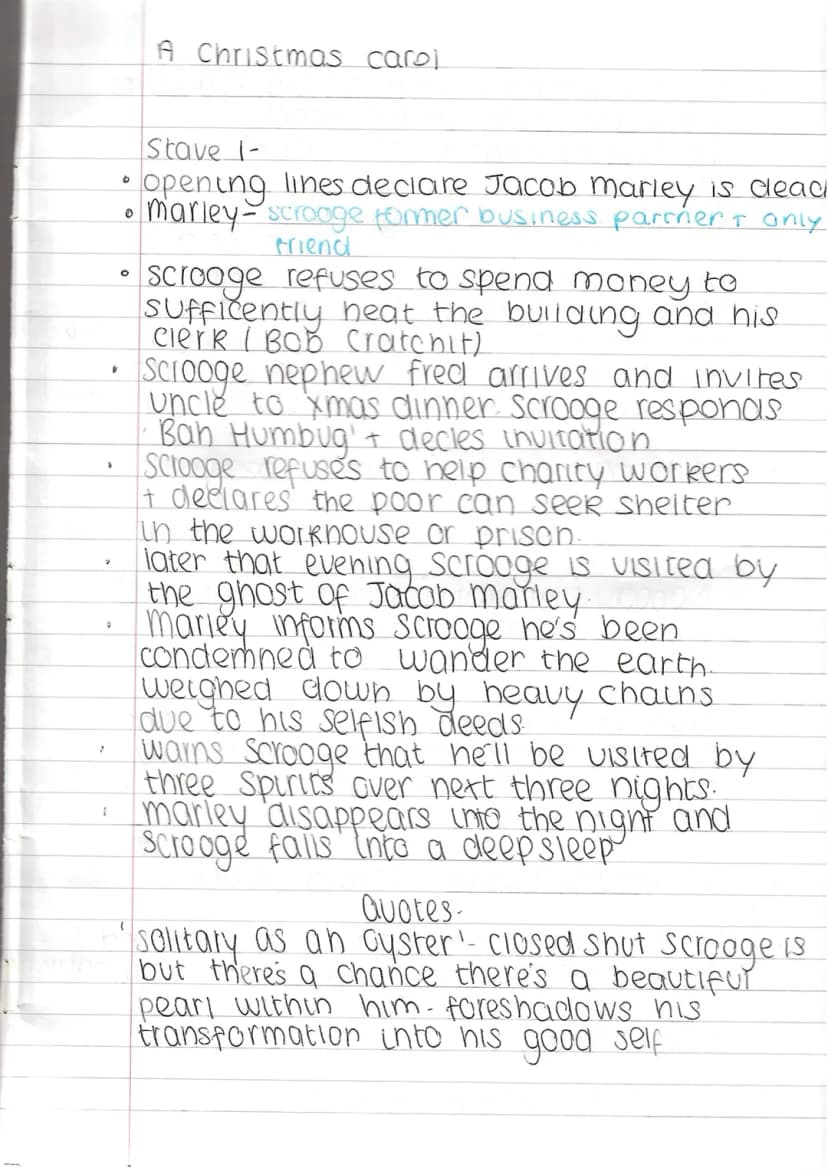 A Christmas carol
Stave 1-
• opening lines declare Jacob Marley is dead
• Marley - scrooge former business partner + only
friend
• scrooge refuses to spend money to
sufficently heat the building and his
clerk (Bob Cratchit)
• scrooge nephew fred arrives and invites
uncle to xmas dinner. scrooge responds
'Bah Humbug' + decles invitation
• scrooge refuses to help charity workers
+ declares the poor can seek shelter
in the workhouse or prison.
• later that evening scrooge is visited by
the ghost of Jacob marley.
• marley informs scrooge he's been
condemned to wander the earth.
weighed down by heavy chains
due to his selfish deeds.
• warns scrooge that he'll be visited by
three spirits over next three nights.
• marley disappears into the night and
scrooge falls into a deep sleep
Quotes-
'solitary as an oyster' - closed shut scrooge is
but there's a chance there's a beautiful
pearl within him - foreshadows his
transformation into his good self